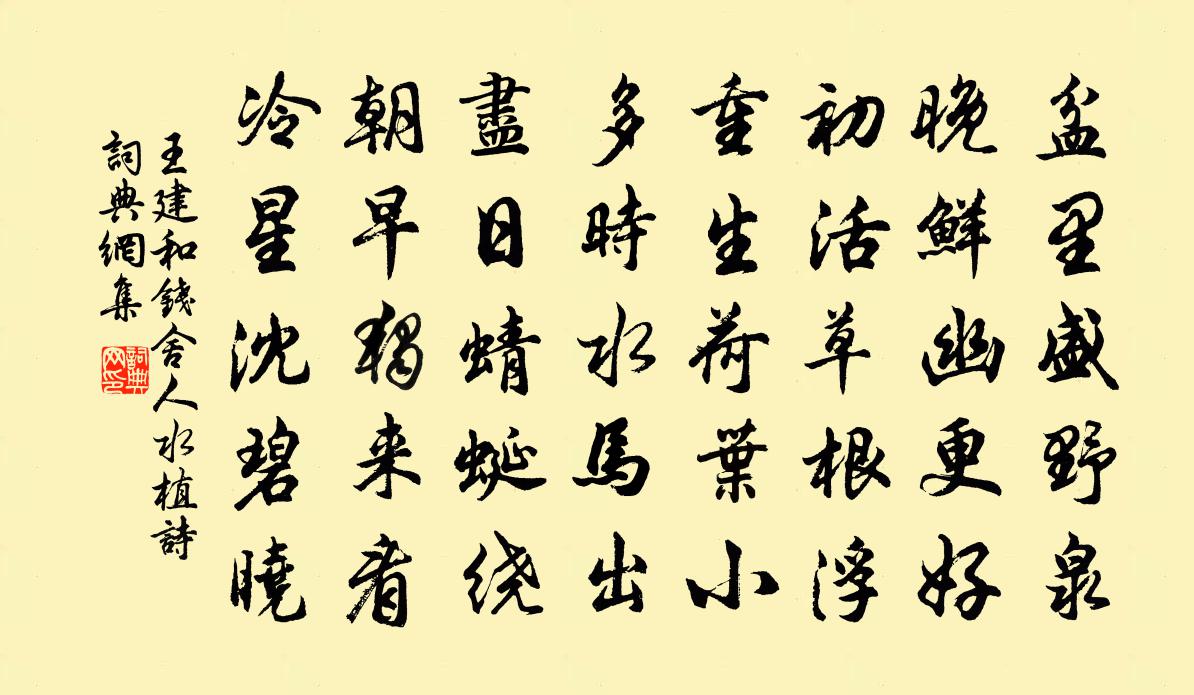 盆里盛野泉
晚鮮幽更好
初活草根浮
重生荷葉小
多時水馬出
盡日蜻蜒绕
朝早獨来看
冷星沈碧曉
王建和錢舍人水植詩
詞典網集
詞典网印